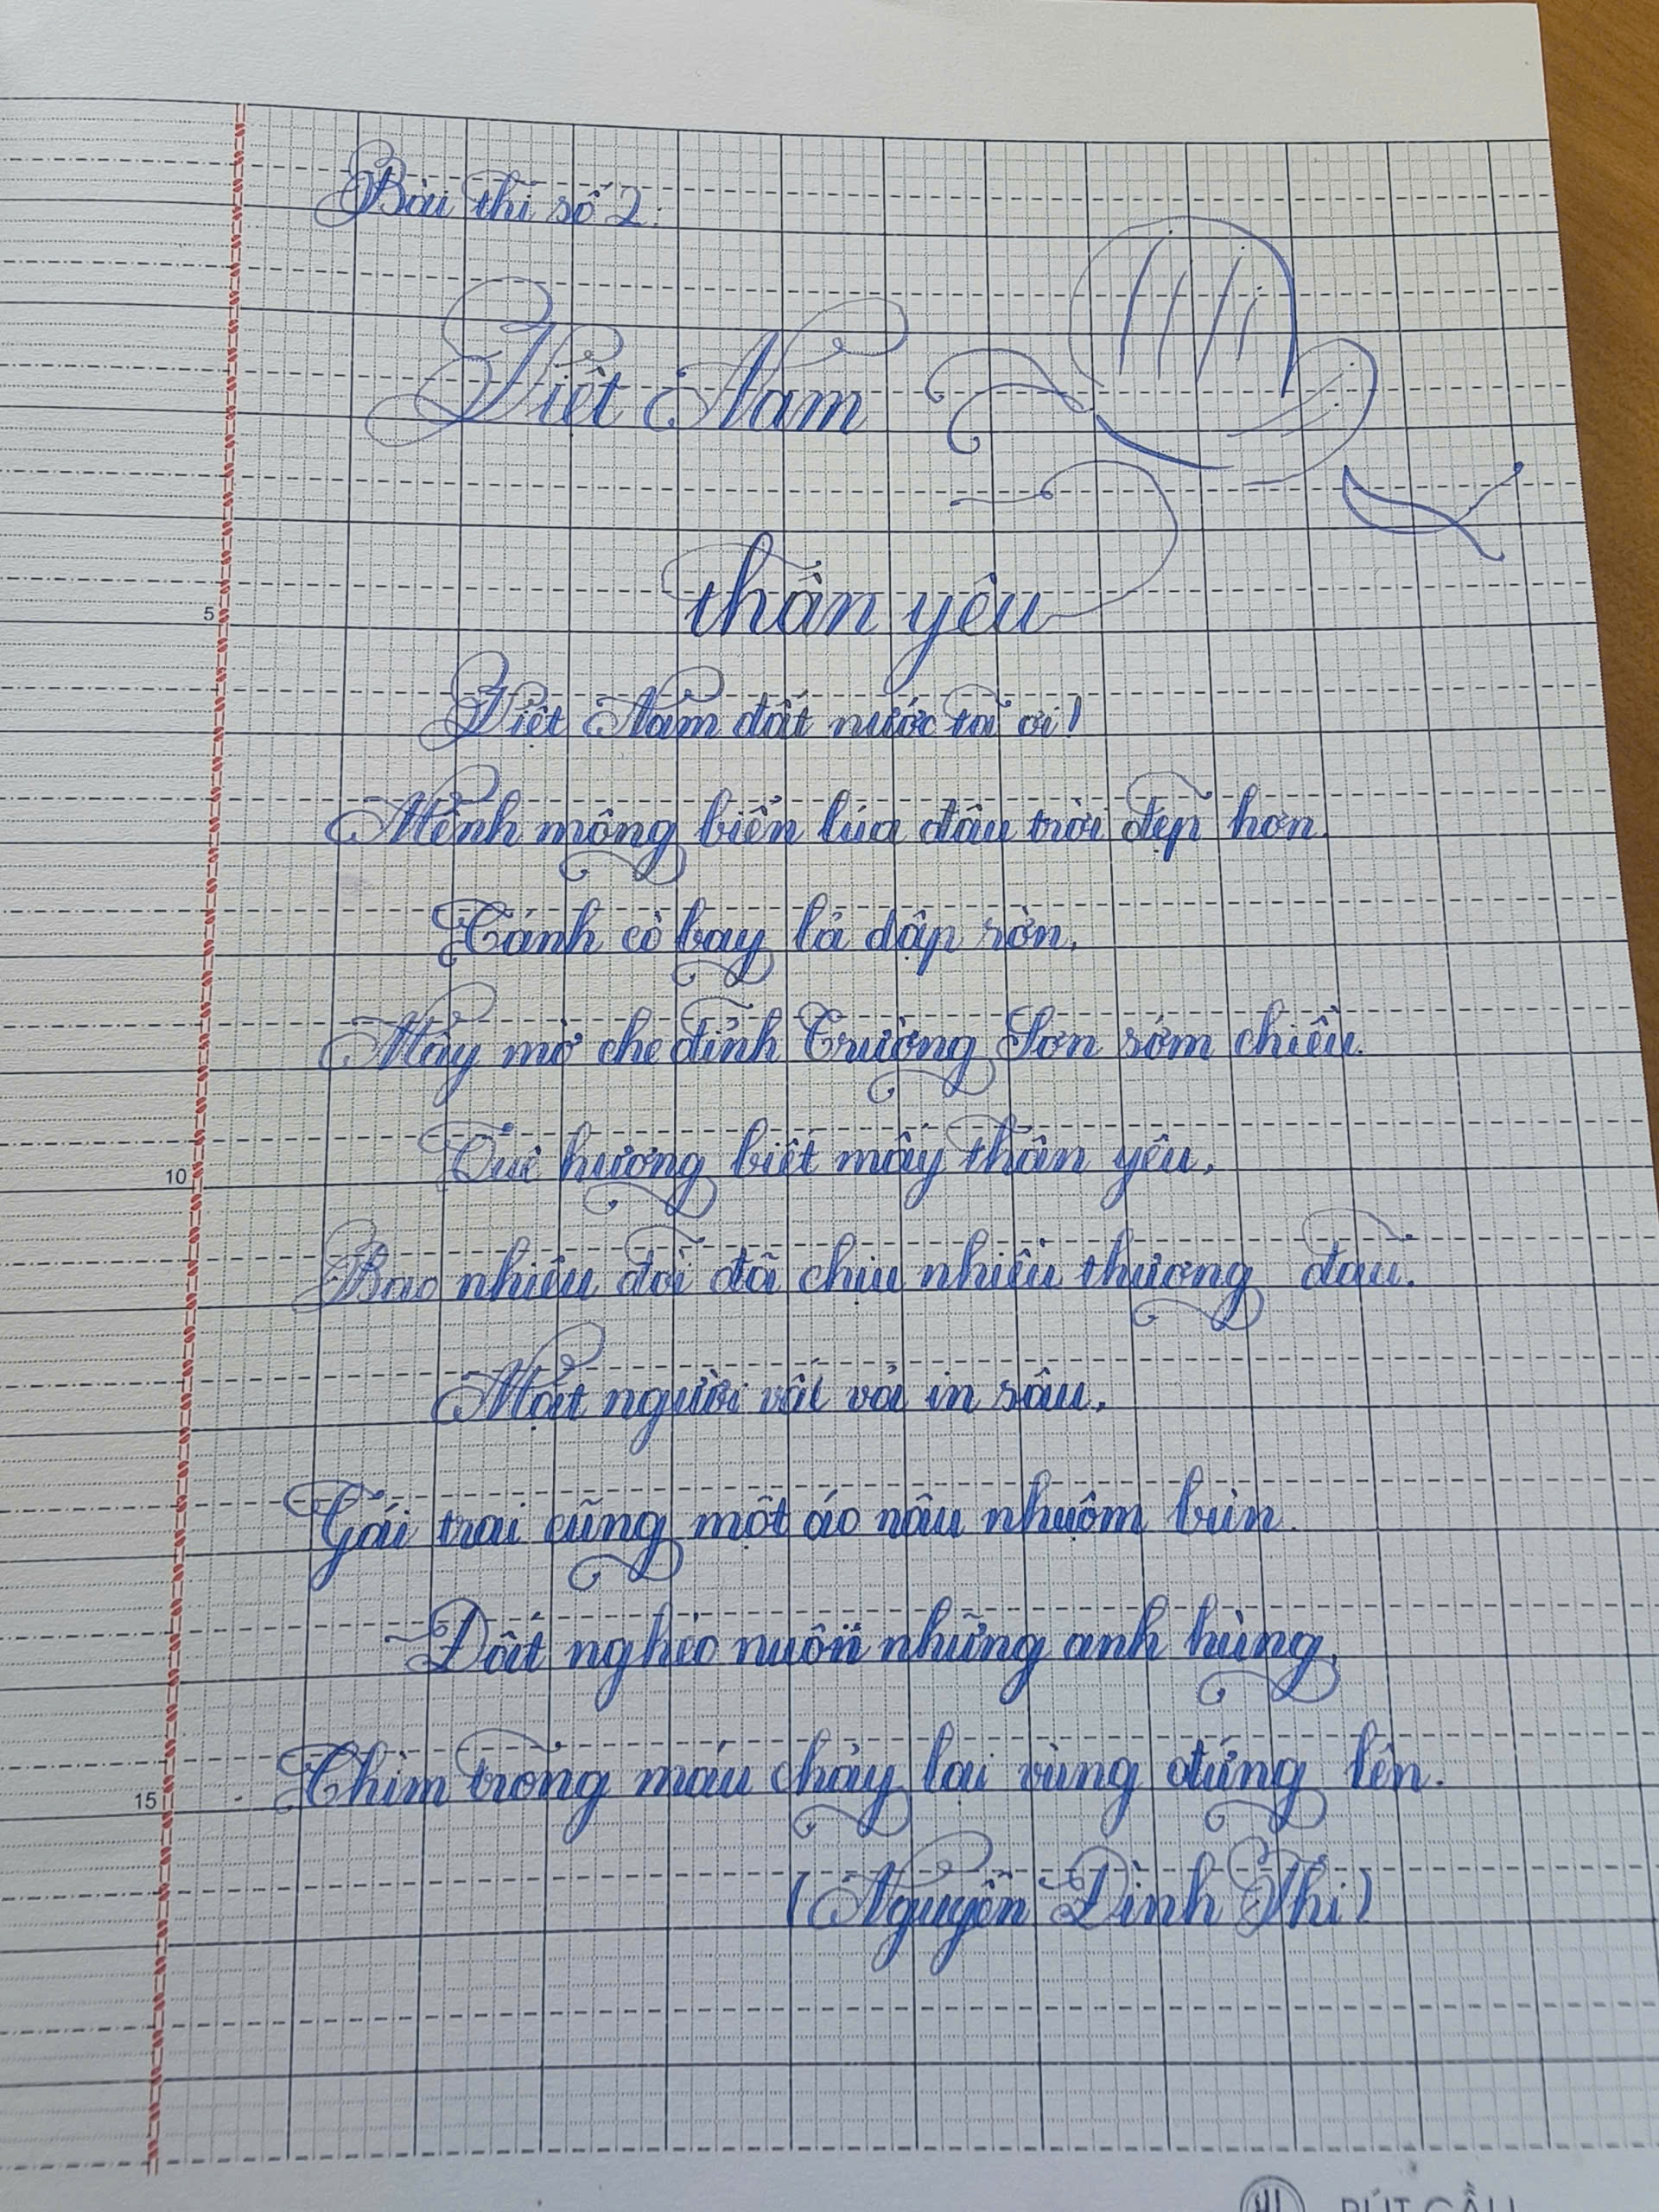 Bài thi số 2:
Việt Nam
thân yêu
Việt Nam đất nước ta ơi!
Mênh mông biển lúa đâu trời đẹp hơn.
Cánh cò bay lả dập rờn,
Mây mờ che đỉnh Trường Sơn sớm chiều.
Quê hương biết mấy thân yêu,
Bao nhiêu đời đã chịu nhiều thương đau.
Mặt người vất vả in sâu,
Gái trai cũng một áo nâu nhuộm bùn.
Đất nghèo nuôi những anh hùng,
Chìm trong máu chảy lại vùng đứng lên.
(Nguyễn Đình Thi)
5
10
15